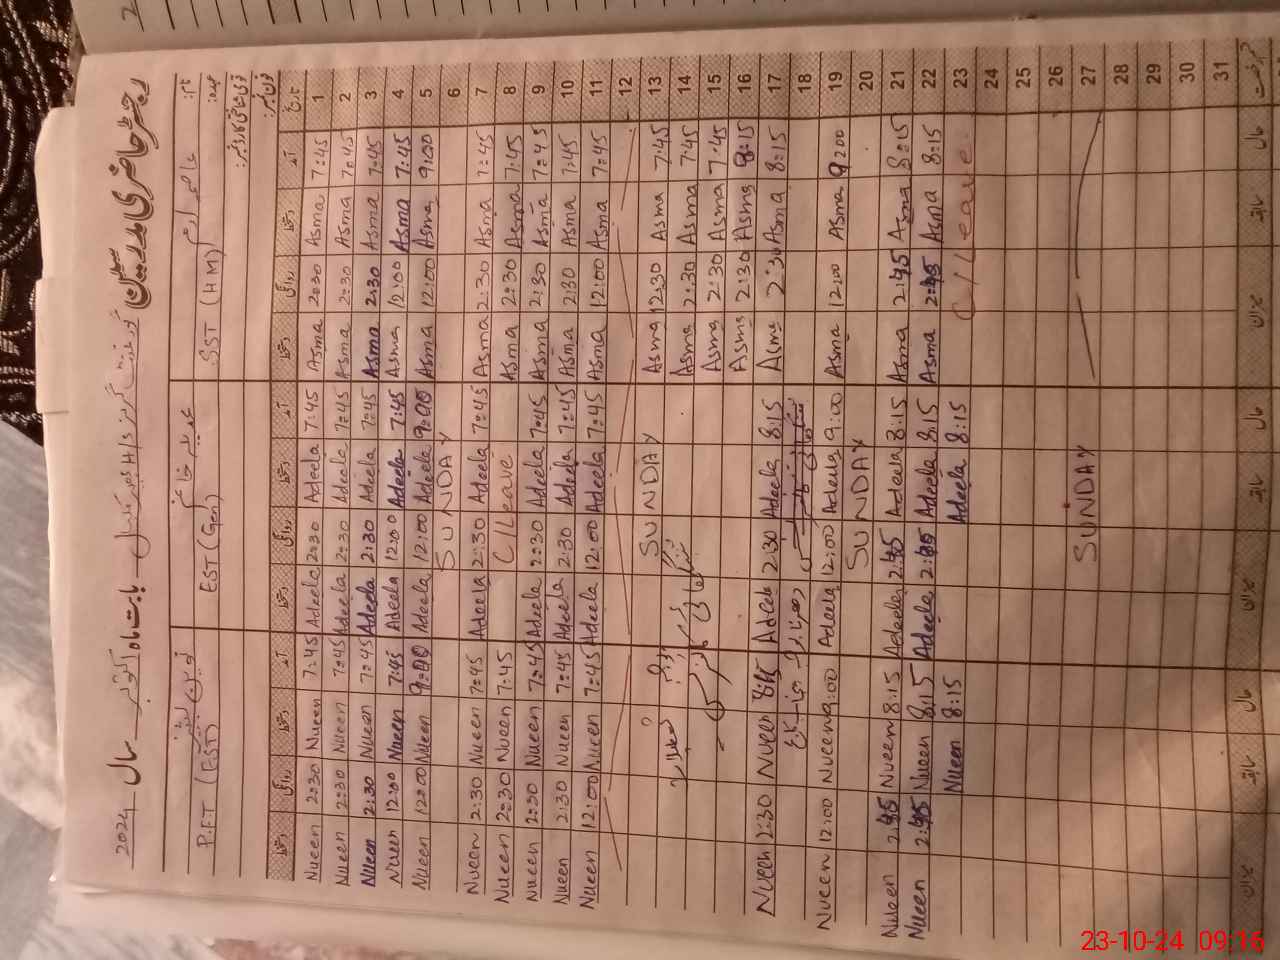 رجسٹر حاضری مدرسین بابت ماہ اکتوبر سال 2024
نام: عاصمہ ارم عدیلہ خانم
عہدہ: SST (HM) EST (Gen) P.ET (EST)
قومی شناختی کارڈ نمبر:
فون نمبر:
تاریخ آمد دستخط روانگی دستخط آمد دستخط روانگی دستخط آمد دستخط روانگی دستخط
1 7:45 Asma 2:30 Asma 7:45 Adeela 2:30 Adeela 7:45 Nueen 2:30 Nueen
2 7:45 Asma 2:30 Asma 7:45 Adeela 2:30 Adeela 7:45 Nueen 2:30 Nueen
3 7:45 Asma 2:30 Asma 7:45 Adeela 2:30 Adeela 7:45 Nueen 2:30 Nueen
4 7:45 Asma 12:00 Asma 7:45 Adeela 12:00 Adeela 7:45 Nueen 12:00 Nueen
5 9:00 Asma 12:00 Asma 9:00 Adeela 12:00 Adeela 9:00 Nueen 12:00 Nueen
6 SUNDAY
7 7:45 Asma 2:30 Asma 7:45 Adeela 2:30 Adeela 7:45 Nueen 2:30 Nueen
8 7:45 Asma 2:30 Asma C/Leave 7:45 Nueen 2:30 Nueen
9 7:45 Asma 2:30 Asma 7:45 Adeela 2:30 Adeela 7:45 Nueen 2:30 Nueen
10 7:45 Asma 2:30 Asma 7:45 Adeela 2:30 Adeela 7:45 Nueen 2:30 Nueen
11 7:45 Asma 12:00 Asma 7:45 Adeela 12:00 Adeela 7:45 Nueen 12:00 Nueen
12
13 7:45 Asma 12:30 Asma SUNDAY
14 7:45 Asma 2:30 Asma
15 7:45 Asma 2:30 Asma
16 8:15 Asma 2:30 Asma
17 8:15 Asma 2:30 Asma 8:15 Adeela 2:30 Adeela 8:15 Nueen 2:30 Nueen
18
19 9:00 Asma 12:00 Asma 9:00 Adeela 12:00 Adeela 9:00 Nueen 12:00 Nueen
20 SUNDAY
21 8:15 Asma 2:45 Asma 8:15 Adeela 2:45 Adeela 8:15 Nueen 2:45 Nueen
22 8:15 Asma 2:45 Asma 8:15 Adeela 2:45 Adeela 8:15 Nueen 2:45 Nueen
23 C/Leave 8:15 Adeela 8:15 Nueen
24
25
26
27 SUNDAY
28
29
30
31
حال سابقہ میزان حال سابقہ میزان حال سابقہ میزان
23-10-24 09:16